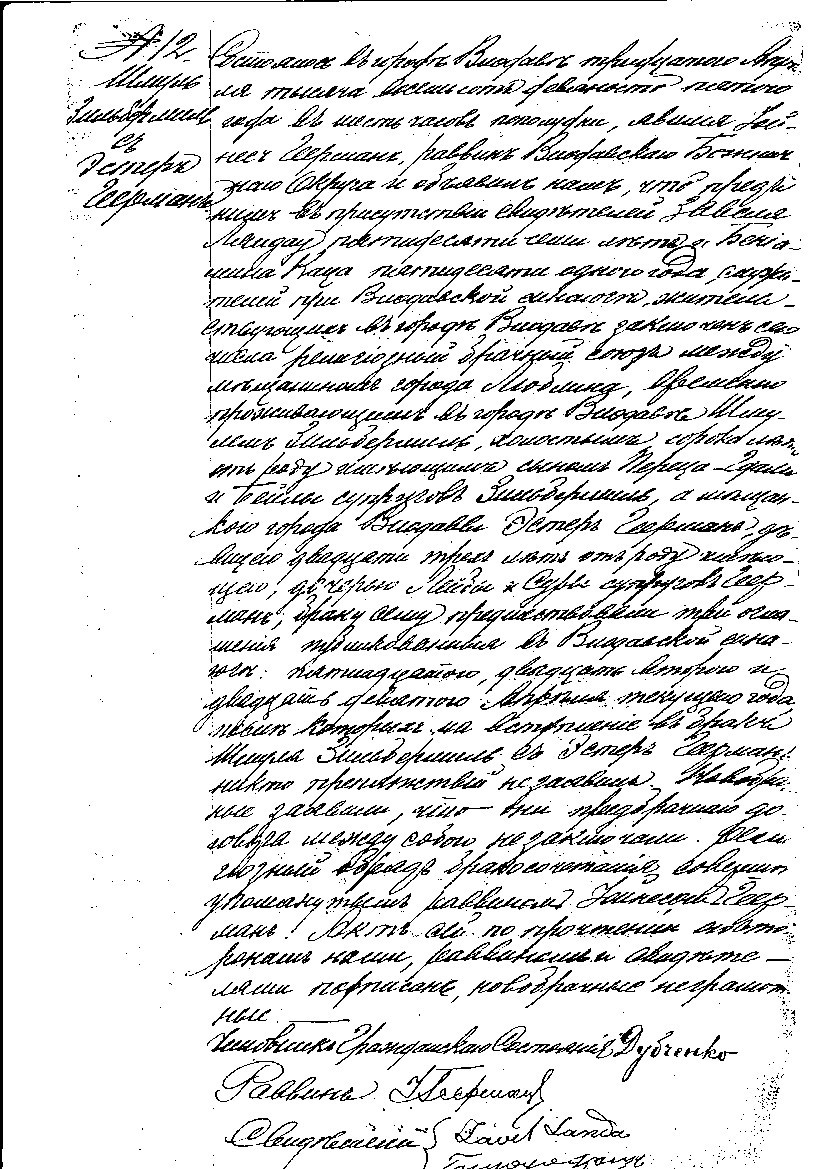 №12.
Шмуль
Зильберштейн
съ
Эстеръ
Геерманъ
Состоялось въ городѣ Влодавѣ тридцатого Апрѣ-
ля тысяча восемьсотъ девяносто пятого
года въ шесть часовъ пополудни, явился
раввинъ Влодавскаго Божнич-
наго Округа и объявилъ намъ, что предъ
нимъ въ присутствіи свидѣтелей Завеля
Ляндау пятидесяти семи лѣтъ и Бенiа-
мина Каца пятидесяти одного года, служи-
телей при Влодавской синагогѣ, житель-
ствующихъ въ городѣ Влодавѣ заключенъ сего
числа религіозный брачный союзъ между
мѣщаниномъ города Люблина, временно
проживающимъ въ городѣ Влодавѣ Шму-
лемъ холостымъ, сорока лѣтъ
отъ роду имѣющимъ, сыномъ Переца-
и Бейлы супруговъ а мѣщан-
кою города Влодавы Эстеръ Геерманъ, дѣ-
вицею двадцати трехъ лѣтъ отъ роду имѣю-
щею, дочерью и Суры супруговъ Геер-
манъ; браку сему предшествовали три огла-
шенія публикованныя въ Влодавской сина-
гогѣ: пятнадцатого, двадцать второго и
двадцать девятого Апрѣля текущаго года,
послѣ которыхъ на вступленіе въ бракъ
Шмуля съ Эстеръ Геерманъ
никто препятствій не заявилъ. Новобрач-
ные заявили, что они предбрачнаго до-
говора между собою не заключали. Рели-
гіозный обрядъ бракосочетанія совершилъ
упомянутымъ раввиномъ Геер-
манъ. Актъ сей по прочтеніи
нами, раввиномъ и свидѣте-
лями подписанъ, новобрачные неграмот-
ные.
Чиновникъ Гражданскаго Состоянія Дубченко
Раввинъ Геерманъ
Свидѣтели Zavel Landa